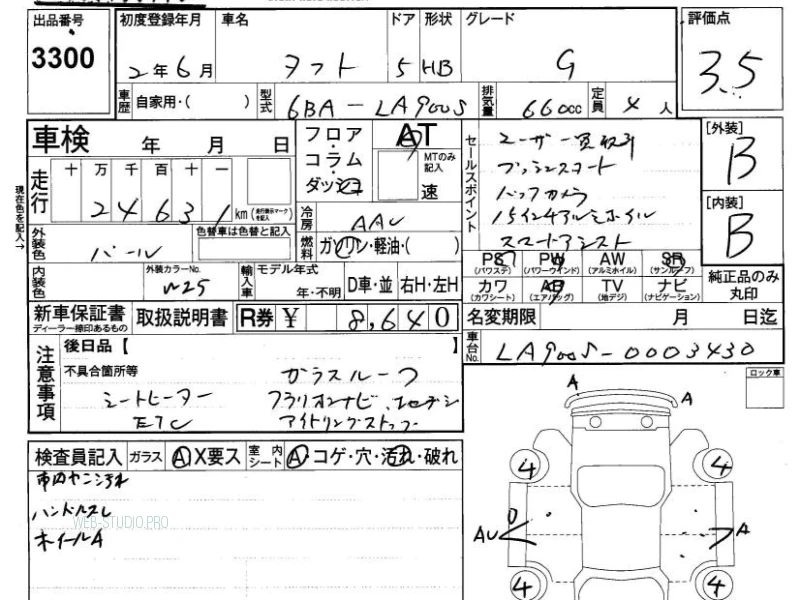 出品番号 初度登録年月 車名 ドア 形状 グレード 評価点
3300 2年6月 タフト 5 HB G 3.5
車歴 自家用・( ) 型式 6BA-LA900S 排気量 660cc 定員 4人
車検 年 月 日 フロア・コラム・ダッシュ AT セールスポイント ユーザー買取り [外装]
MTのみ記入 プッシュスタート B
走行 十 万 千 百 十 一 速 バックカメラ
24631 km (走行距離マーク)を記入 冷房 AAC 15インチアルミホイル [内装]
現在色を記入→ スマートアシスト B
外装色 パール 色替車は色替と記入 燃料 ガソリン・軽油・( )
PS (パワステ) PW (パワーウインド) AW (アルミホイル) SR (サンルーフ)
内装色 外装カラーNo. W25 輸入車 モデル年式 年・不明 D車・並 右H・左H
カワ (カワシート) AB (エアバッグ) TV (地デジ) ナビ (ナビゲーション) 純正品のみ丸印
新車保証書 ディーラー捺印あるもの 取扱説明書 R券 ¥ 8,640 名変期限 月 日迄
注意事項 後日品【 】 車台No. LA900S-0003430
不具合箇所等 ガラスルーフ ロック車
シートヒーター
ETC アイドリングストップ
A A
検査員記入 ガラス A X要ス 室内シート A・コゲ・穴・汚れ・破れ
車内ヤニ汚れ 4 4
ハンドルスレ
WEB-STUDIO.PRO
ホイールA AU A
4 4